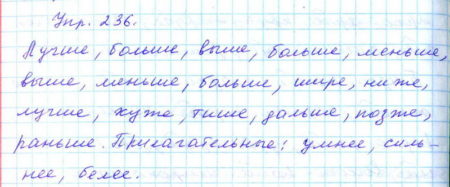 Упр. 236.
Лучше, больше, выше, больше, меньше,
выше, меньше, больше, шире, ниже,
лучше, хуже, тише, дальше, позже,
раньше. Прилагательные: умнее, силь-
нее, белее.